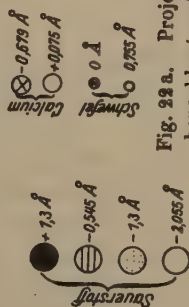 Sauerstoff
+1,3 Å
-0,545 Å
-1,3 Å
-2,055 Å
Calcium
-0,679 Å
+0,075 Å
Schwefel
0 Å
0,755 Å
Fig. 22a. Proje